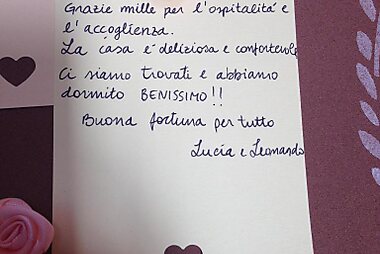 Grazie mille per l'ospitalitá e
l'accoglienza.
La casa é deliziosa e confortevole
Ci siamo trovati e abbiamo
dormito BENISSIMO!!
Buona fortuna per tutto
Lucia e Leonardo